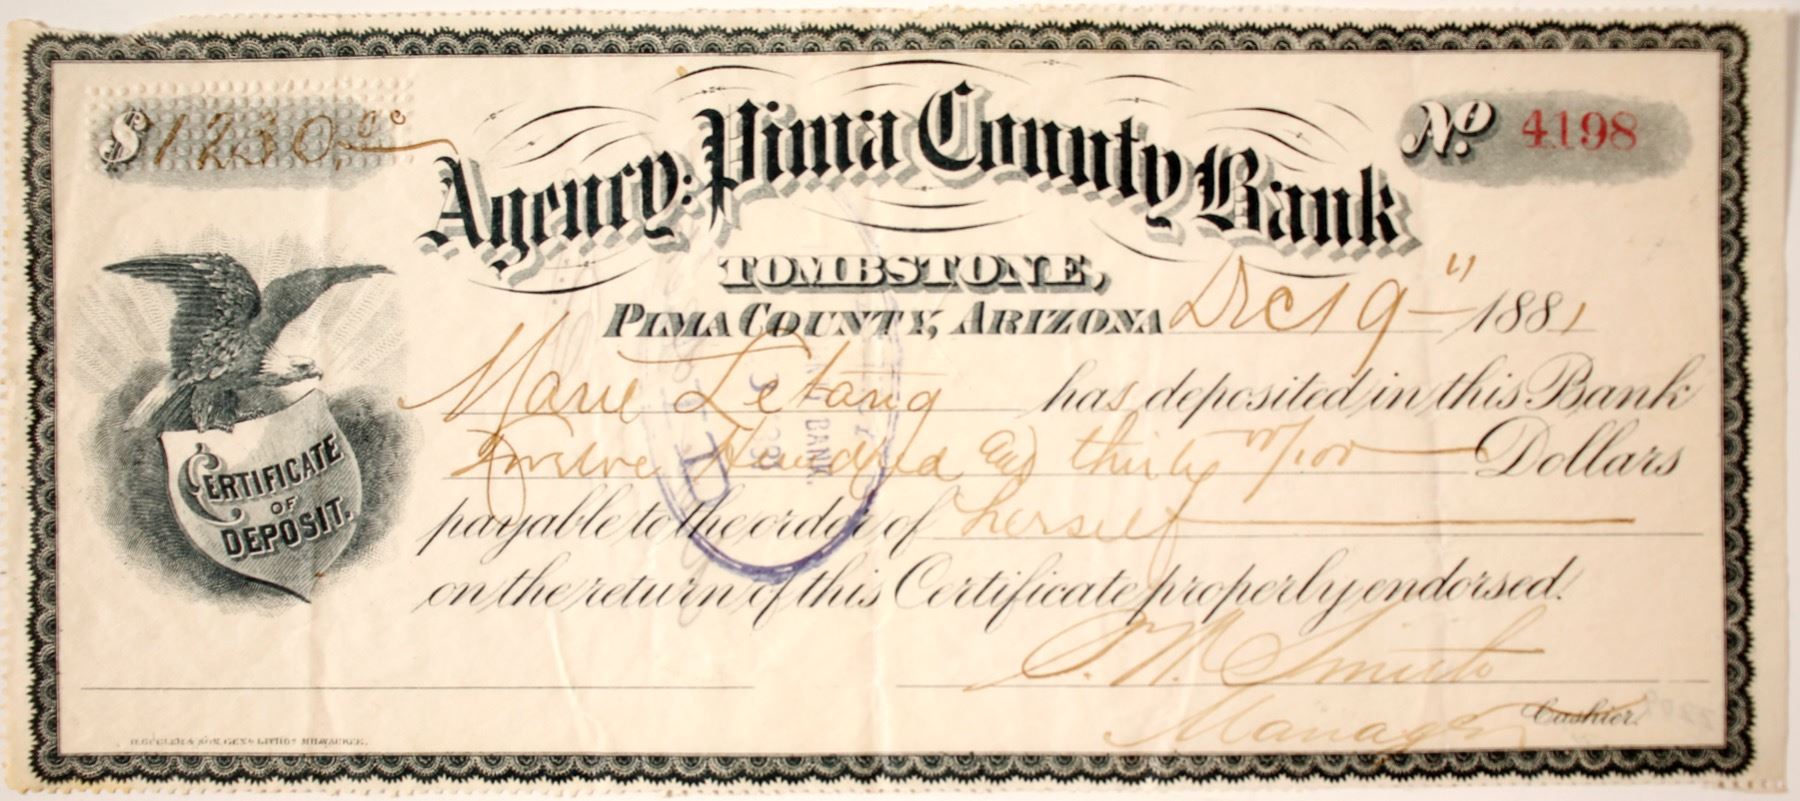 $1230.00
Agency: Pima County Bank
No. 4198
TOMBSTONE,
PIMA COUNTY, ARIZONA Dec 19" 1881
Marie Letang has deposited in this Bank
Twelve Hundred and thirty 00/100 Dollars
payable to the order of herself
on the return of this Certificate properly endorsed.
CERTIFICATE
OF
DEPOSIT.
BANK.
Manager Cashier.
& SON. GEN. LITHOS MILWAUKEE.